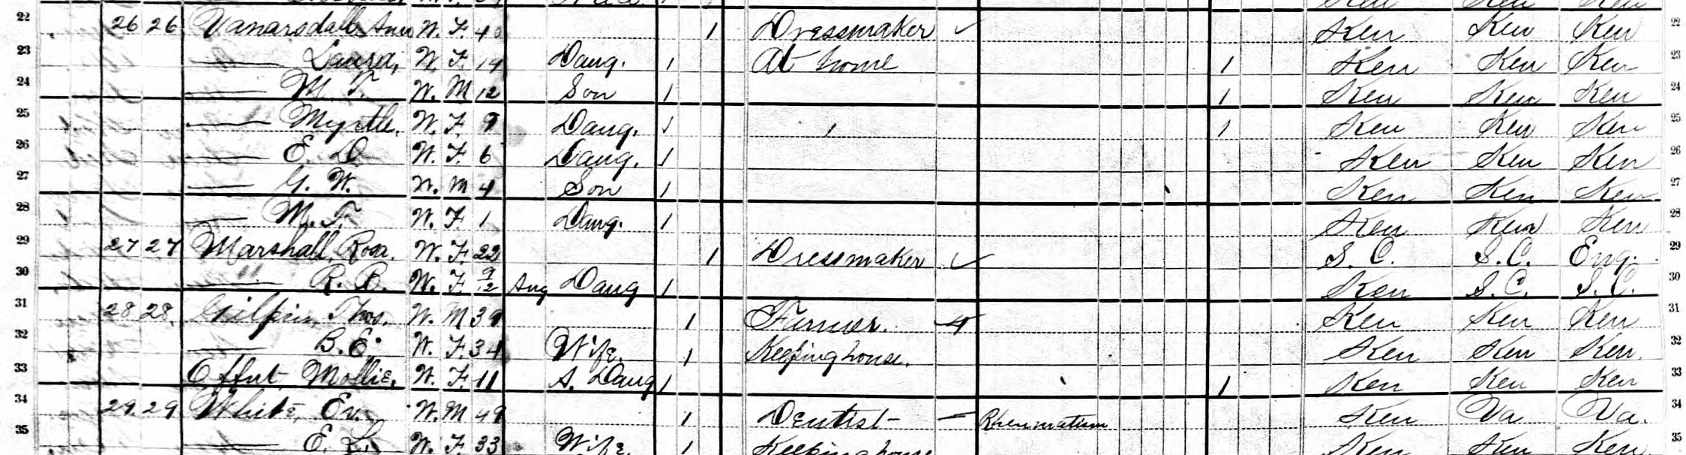 22 26 26 Vanarsdall, Ann W. F. 40 1 Dressmaker ✓ Ken Ken Ken 22
23 —— Laura, W. F. 14 Daug. 1 At home 1 Ken Ken Ken 23
24 —— M. T. W. M 12 Son 1 1 Ken Ken Ken 24
25 —— Myrtle, W. F. 9 Daug. 1 1 Ken Ken Ken 25
26 —— E. D. W. F. 6 Daug. 1 Ken Ken Ken 26
27 —— G. W. W. M 4 Son 1 Ken Ken Ken 27
28 —— M. F. W. F. 1 Daug. 1 Ken Ken Ken 28
29 27 27 Marshall, W. F. 22 1 Dressmaker ✓ S. C. S. C. Eng. 29
30 —— R. B. W. F. 9/12 Aug Daug 1 Ken S. C. S. C. 30
31 28 28 Gilpin, Thos. W. M 39 1 Farmer. 4 Ken Ken Ken 31
32 —— B. E. W. F. 34 Wife. 1 Keeping house. Ken Ken Ken 32
33 Offut Mollie, W. F. 11 S. Daug 1 1 Ken Ken Ken 33
34 29 29 White, Ev. W. M 49 1 Dentist — Rheumatism Ken Va Va. 34
35 —— E. L. W. F. 33 Wife. 1 Keeping house Ken Ken Ken 35